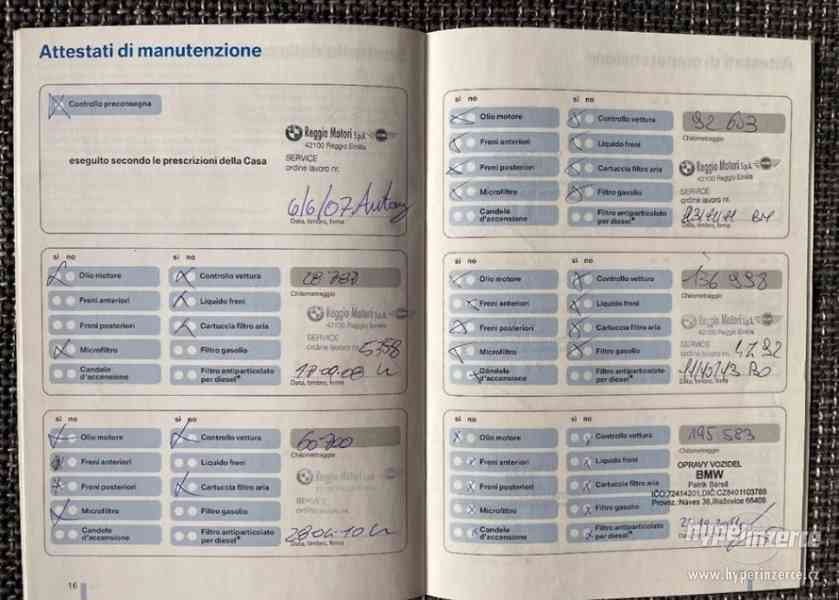 Attestati di manutenzione
Controllo preconsegna
eseguito secondo le prescrizioni della Casa
Reggio Motori S.p.A.
42100 Reggio Emilia
SERVICE
ordine lavoro nr.
6/6/07
Data, timbro, firma
si no si no
Olio motore Controllo vettura
Freni anteriori Liquido freni
Freni posteriori Cartuccia filtro aria
Microfiltro Filtro gasolio
Candele d'accensione Filtro antiparticolato per diesel*
Chilometraggio
Reggio Motori S.p.A.
42100 Reggio Emilia
SERVICE
ordine lavoro nr.
Data, timbro, firma
si no si no
Olio motore Controllo vettura
Freni anteriori Liquido freni
Freni posteriori Cartuccia filtro aria
Microfiltro Filtro gasolio
Candele d'accensione Filtro antiparticolato per diesel*
60700
Chilometraggio
Reggio Motori
Data, timbro, firma
16
si no si no
Olio motore Controllo vettura
Freni anteriori Liquido freni
Freni posteriori Cartuccia filtro aria
Microfiltro Filtro gasolio
Candele d'accensione Filtro antiparticolato per diesel*
92 603
Chilometraggio
Reggio Motori S.p.A.
42100 Reggio Emilia
SERVICE
ordine lavoro nr.
si no si no
Olio motore Controllo vettura
Freni anteriori Liquido freni
Freni posteriori Cartuccia filtro aria
Microfiltro Filtro gasolio
Candele d'accensione Filtro antiparticolato per diesel*
136 998
Chilometraggio
Reggio Motori S.p.A.
42100 Reggio Emilia
SERVICE
ordine lavoro nr.
si no si no
Olio motore Controllo vettura
Freni anteriori Liquido freni
Freni posteriori Cartuccia filtro aria
Microfiltro Filtro gasolio
Candele d'accensione Filtro antiparticolato per diesel*
195 583
Chilometraggio
OPRAVY VOZIDEL
BMW
Patrik
IČO:72414201,DIČ:CZ8401103788
Provoz. Náves 36,Blažovice 66408
hyperinzerce
www.hyperinzerce.cz